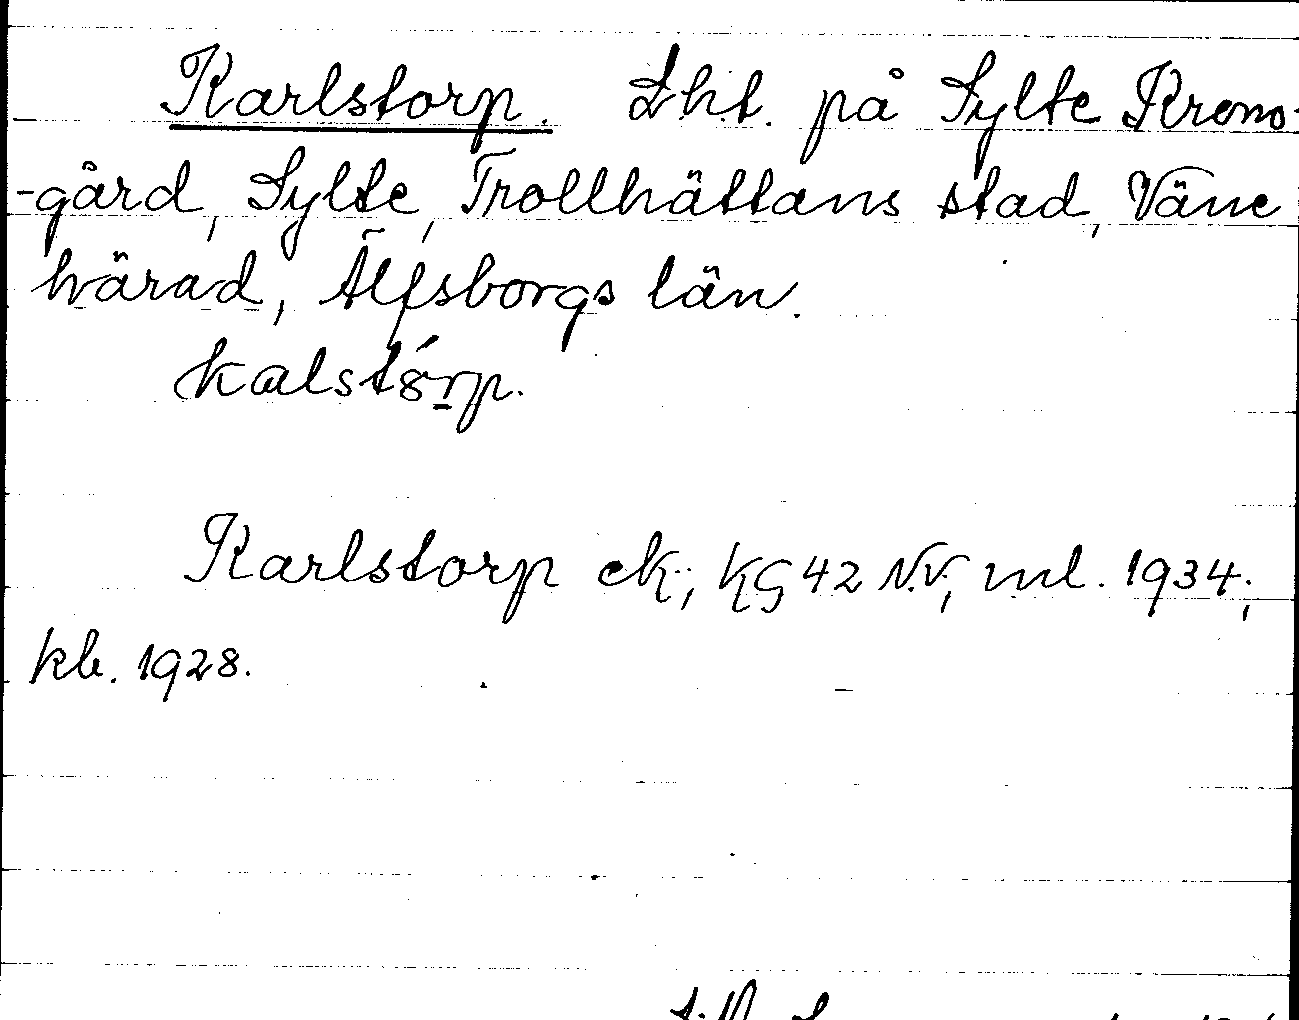 Karlstorp. Lht. på Sylte Krono-
-gård, Sylte, Trollhättans stad, Väne
härad, Älfsborgs län.
kalstórp.
Karlstorp ek., KG 42 N.V., ml. 1934;
kb. 1928.